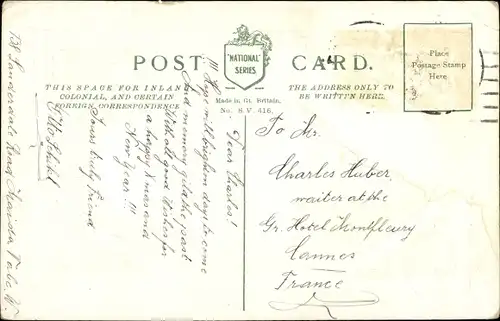 POST CARD.
"NATIONAL"
SERIES
THIS SPACE FOR INLAND
COLONIAL, AND CERTAIN
FOREIGN CORRESPONDENCE
Made in Gt. Britain.
No. S.V. 416.
THE ADDRESS ONLY TO
BE WRITTEN HERE.
Place
Postage Stamp
Here.
Dear Charles!
!!! Hope in brighter days to come
And memory of the past
With all good wishes for
a happy Xmas and
New Year!!!
Yours truly friend
Otto
Maida Vale W.
To Mr.
Charles Huber
waiter at the
Gr. Hotel Montfleury
Cannes
France